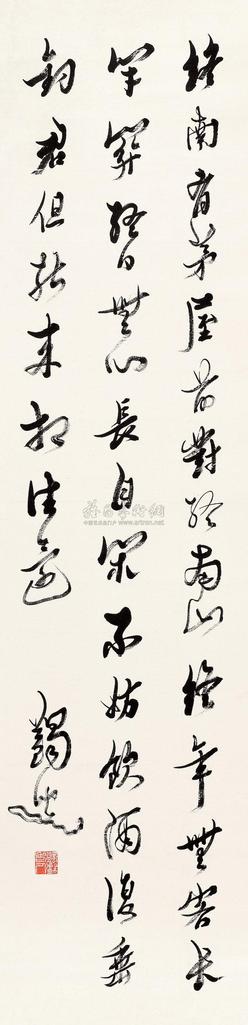 終南有茅屋前對終南山終年無客長
閉關終日無心長自閑不妨飲酒復垂
釣君但能來相往還
蠲叟
雅昌藝術網